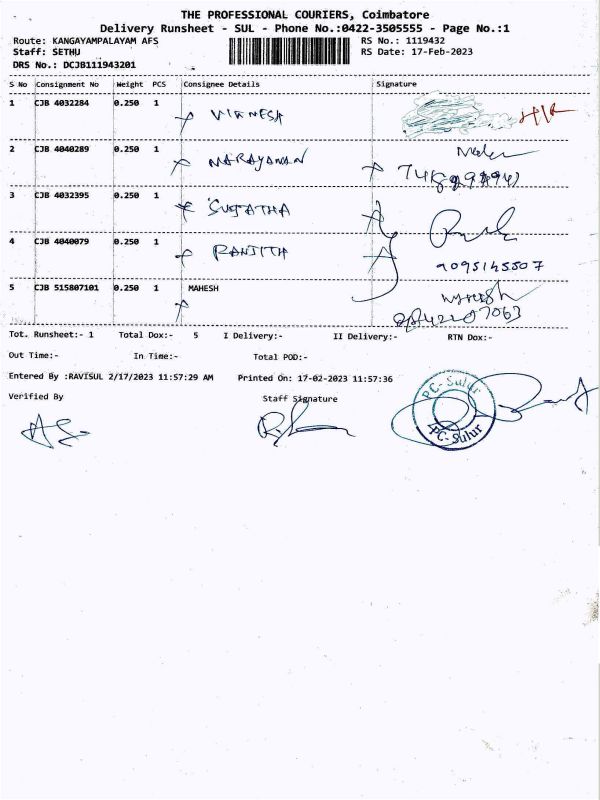 THE PROFESSIONAL COURIERS, Coimbatore
Delivery Runsheet - SUL - Phone No.:0422-3505555 - Page No.:1
Route: KANGAYAMPALAYAM AFS RS No.: 1119432
Staff: SETHU RS Date: 17-Feb-2023
DRS No.: DCJB111943201
S No Consignment No Weight PCS Consignee Details Signature
1 CJB 4032284 0.250 1 VIGNESH
2 CJB 4040289 0.250 1 NARAYANAN
3 CJB 4032395 0.250 1 SUJATHA
4 CJB 4040079 0.250 1 RANJITH
9095145507
5 CJB 515807101 0.250 1 MAHESH
Tot. Runsheet:- 1 Total Dox:- 5 I Delivery:- II Delivery:- RTN Dox:-
Out Time:- In Time:- Total POD:-
Entered By :RAVISUL 2/17/2023 11:57:29 AM Printed On: 17-02-2023 11:57:36
Verified By Staff Signature
PC-Sulur
PC-Sulur